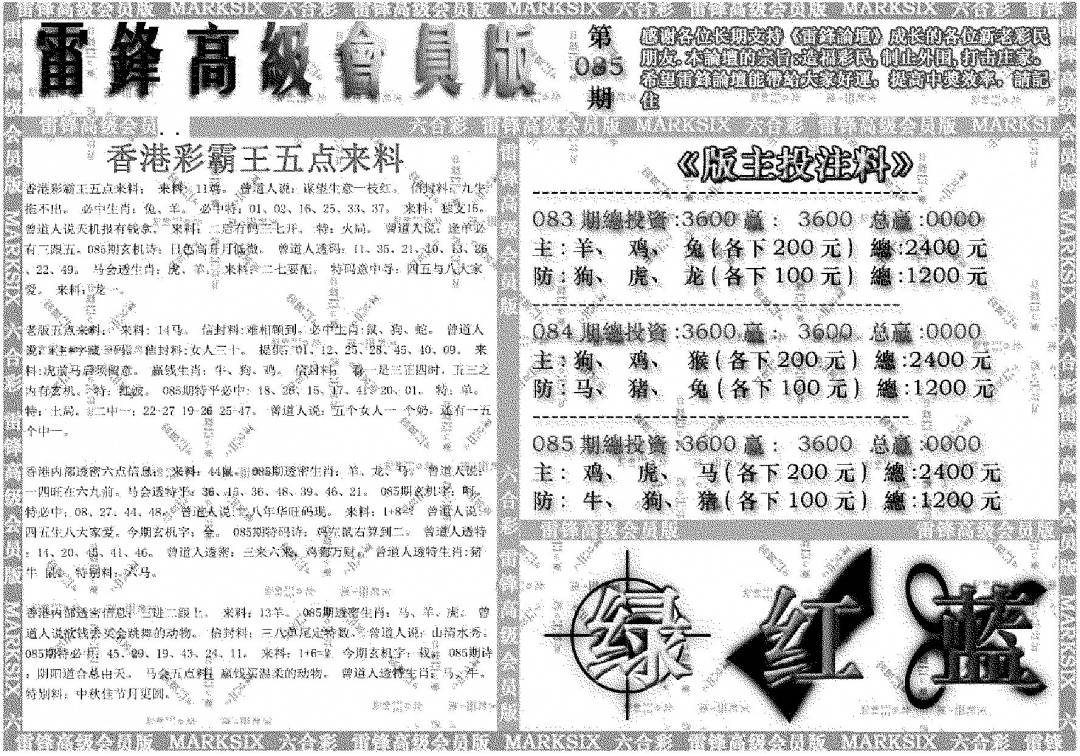 MARKSIX 六合彩 雷锋高级会员版
雷鋒高級會員版
第
085
期
感谢各位长期支持《雷鋒論壇》成长的各位新老彩民
朋友.本論壇的宗旨:造福彩民,制止外围,打击庄家。
希望雷鋒論壇能帶給大家好運，提高中獎效率，請記
住
雷锋高级会员 六合彩 雷锋高级会员版 MARKSIX 六合彩 雷锋高级会员版 MARKSI
香港彩霸王五点来料
香港彩霸王五点来料： 来料：11鸡。 曾道人说：谋望生意一枝红。 信封料：九生
拖不出。 必中生肖：兔、羊。 必中特：01、02、16、25、33、37。 来料：独支15。
曾道人说天机报有钱拿。 来料：二后有码三七开。 特：火局。 曾道人说：逢单必
有三跟五。085期玄机诗：日色高年月 曾道人透码：11、35、21、10、13、26
、22、49。 马会透生肖：虎、羊。 来料：二七要配。 特码意中寻：四五与八大家
爱。 来料：龙一。
老版五点来料： 来料：14马。 信封料:难相顾到。必中生肖:鼠、狗、蛇。 曾道人
说 信封料:女人三十。 提供：01、12、25、28、45、40、09。 来
料:虎前马后须留意。 赢钱生肖：牛、狗、鸡。 信封料： 看一是三正四时，五三之
内有玄机。 特：红波。 085期特平必中：18、26、15、17、41、20、01。 特：单。
特：土局。 二中一：22-27 19-26 25-47。 曾道人说：五个女人一个奶，还有一五
个中一。
香港内部透密六点信息： 来料：44鼠。 085期透密生肖：羊、龙、马。 曾道人说：
一四旺在六九前。马会透特平：36、15、36、48、39、46、21。 085期玄机字：
特必中：08、27、44、48。 曾道人说:二八年华旺码现。 来料：1+8= 曾道人说
四五生八大家爱。今期玄机字： 085期特码诗：鸡在鼠右算到二。 曾道人透特
：14、20、 、41、46。 曾道人透密：三来六来，鸡狗万财。 曾道人透特生肖:猪
牛 鼠。 特别料：六马。
香港内部透密信息：二进二跟上。 来料：13羊。 085期透密生肖：马、羊、虎。 曾
道人说欲钱去买会跳舞的动物。 信封料：三八单尾定特数。 曾道人说：山清水秀。
085期特必中：45、29、19、43、24、11。 来料：1+6= 今期玄机字：钱。 085期诗
：阴阳道合总由天。 马会五点料：赢钱买温柔的动物。 曾道人透特生肖：马、牛。
特别料：中秋佳节月更圆。
《版主投注料》
083 期總投資:3600 赢： 3600 总赢:0000
主：羊、 鸡、 兔(各下 200 元) 總:2400 元
防：狗、 虎、 龙(各下 100 元) 總:1200 元
084 期總投資:3600 赢： 3600 总赢:0000
主：狗、 鸡、 猴(各下 200 元) 總:2400 元
防：马、 猪、 兔(各下 100 元) 總:1200 元
085 期總投資:3600 赢： 3600 总赢:0000
主： 鸡、 虎、 马(各下 200 元) 總:2400 元
防：牛、 狗、 猪(各下 100 元) 總:1200 元
雷锋高级会员版 雷锋高级会员版
绿 红 蓝
雷锋高级会员版 MARKSIX 六合彩 雷锋高级会员版 MARKSIX 六合彩 雷锋高级会员版 MARKSIX 六合彩 雷锋